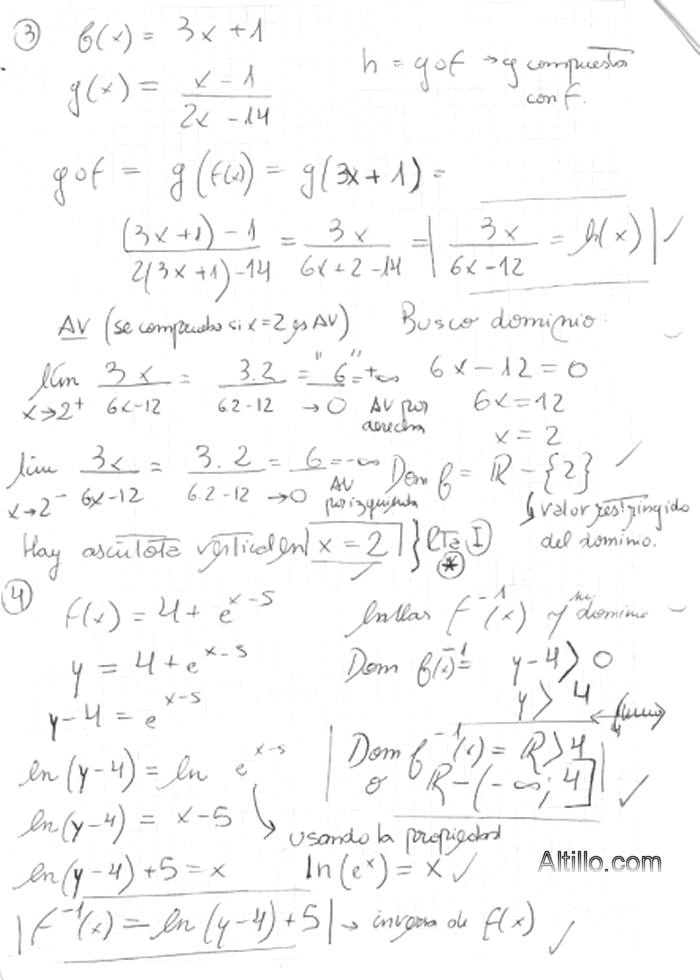 ③ f(x) = 3x+1
g(x) = (x - 1)/(2x - 14)
h = gof → g compuesta
con f.
gof = g(f(x)) = g(3x+1) =
((3x+1)-1)/(2(3x+1)-14) = 3x/(6x+2-14) = | 3x/(6x-12) = h(x) | ✓
AV (se comprueba si x=2 es AV)
lím x→2⁺ 3x/(6x-12) = 3.2/(6.2-12) = "6"/→0 = +∞ AV por
derecha
lim x→2⁻ 3x/(6x-12) = 3.2/(6.2-12) = 6/→0 = -∞ AV
por izquierda
Hay asíntota vertical en | x = 2 | } Rta I
*
Busco dominio:
6x - 12 = 0
6x = 12
x = 2
Dom f = R - {2} ✓
↳ valor restringido
del dominio.
④ f(x) = 4 + e^(x-5)
y = 4 + e^(x-5)
y-4 = e^(x-5)
ln(y-4) = ln e^(x-5)
ln(y-4) = x-5
ln(y-4)+5 = x
| f⁻¹(x) = ln(y-4)+5 | → inversa de f(x) ✓
hallar f⁻¹(x) y su dominio
Dom f(x)⁻¹ = y-4 > 0
y > 4
Dom f⁻¹(x) = R > 4
o R - (-∞; 4] ✓
usando la propiedad
ln(eˣ) = x ✓
Altillo.com